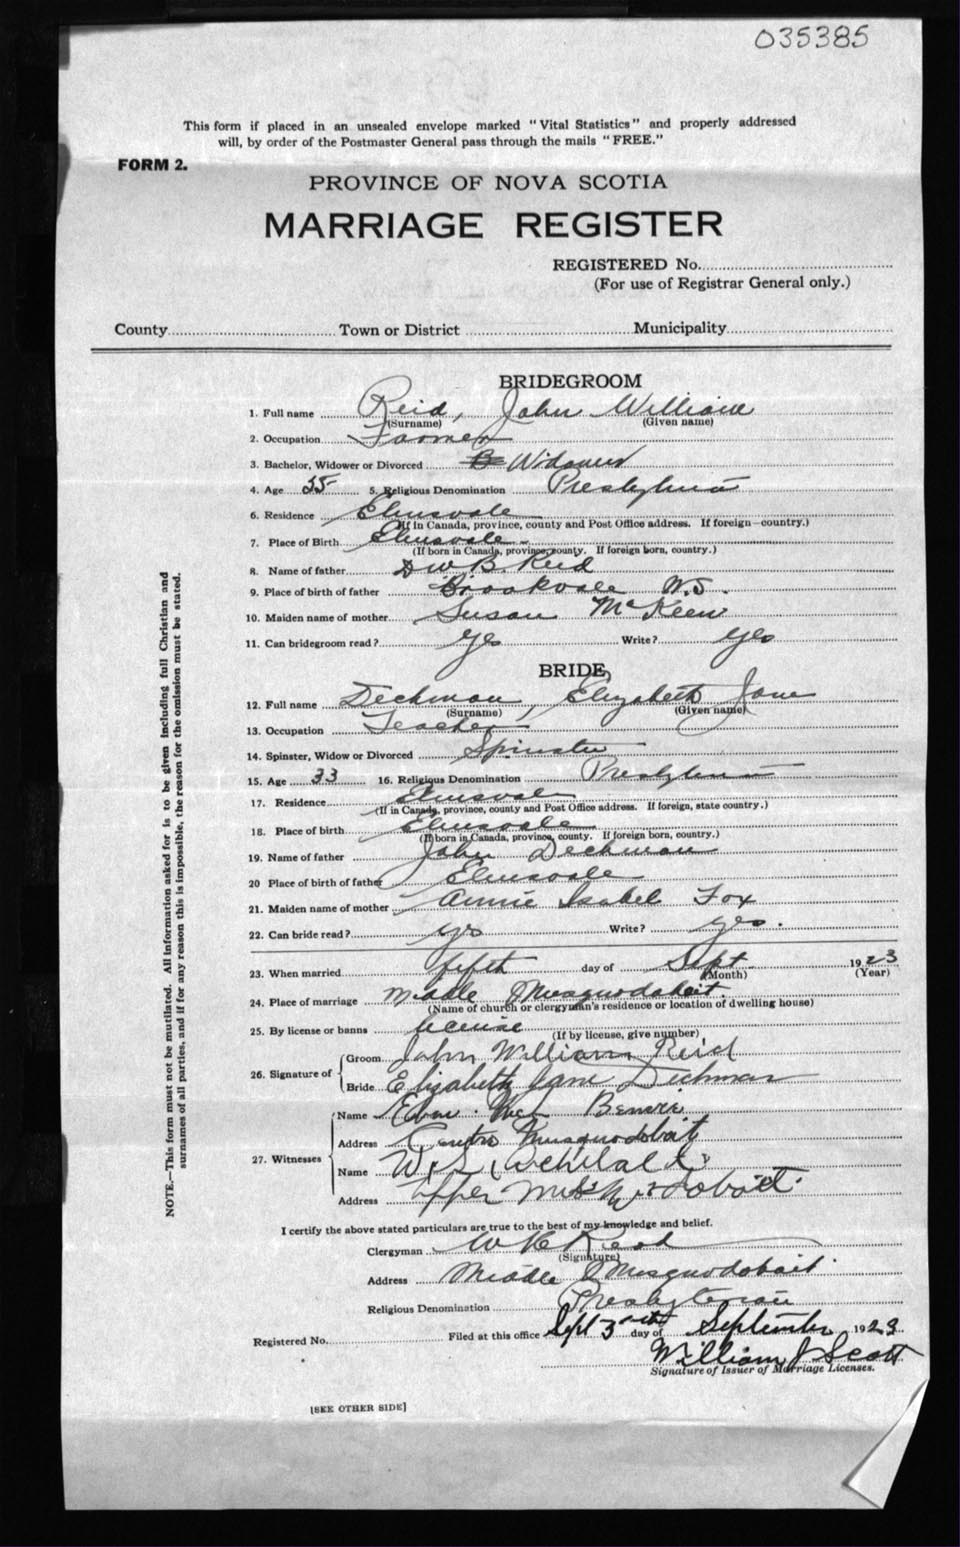 035385
This form if placed in an unsealed envelope marked "Vital Statistics" and properly addressed
will, by order of the Postmaster General pass through the mails "FREE."
FORM 2.
PROVINCE OF NOVA SCOTIA
MARRIAGE REGISTER
REGISTERED No.
(For use of Registrar General only.)
County Town or District Municipality
BRIDEGROOM
1. Full name Reid, John William
(Surname) (Given name)
2. Occupation Farmer
3. Bachelor, Widower or Divorced B Widower
4. Age 35 5. Religious Denomination Presbyterian
6. Residence Elmsvale
(If in Canada, province, county and Post Office address. If foreign—country.)
7. Place of Birth Elmsvale
(If born in Canada, province, county. If foreign born, country.)
8. Name of father B. Reid
9. Place of birth of father Brookvale N.S.
10. Maiden name of mother Susan McKeen
11. Can bridegroom read? yes Write? yes
BRIDE
12. Full name Deckman, Elizabeth Jane
(Surname) (Given name)
13. Occupation Teacher
14. Spinster, Widow or Divorced Spinster
15. Age 33 16. Religious Denomination Presbyterian
17. Residence Elmsvale
(If in Canada, province, county and Post Office address. If foreign, state country.)
18. Place of birth Elmsvale
(If born in Canada, province, county. If foreign born, country.)
19. Name of father John Deckman
20 Place of birth of father Elmsvale
21. Maiden name of mother Annie Isabel Fox
22. Can bride read? yes Write? yes.
23. When married fifth day of Sept. 1923
(Month) (Year)
24. Place of marriage Middle Musquodoboit.
(Name of church or clergyman's residence or location of dwelling house)
25. By license or banns license
(If by license, give number)
26. Signature of
Groom John William Reid
Bride Elizabeth Jane Dickman
27. Witnesses
Name Benvie
Address Centre Musquodoboit
Name W. S. Archibald
Address Upper Musquodoboit.
I certify the above stated particulars are true to the best of my knowledge and belief.
Clergyman W K Read
(Signature)
Address Middle Musquodoboit.
Religious Denomination Presbyterian
Registered No. Filed at this office Sept 3 day of September 1923
William J Scott
Signature of Issuer of Marriage Licenses.
[SEE OTHER SIDE]
NOTE.—This form must not be mutilated. All information asked for is to be given including full Christian and
surnames of all parties, and if for any reason this is impossible, the reason for the omission must be stated.